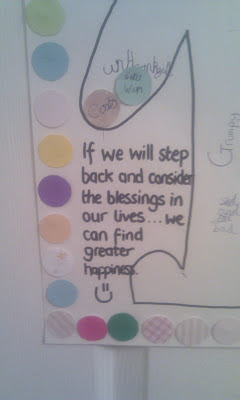 If we will step
back and consider
the blessings in
our lives... we
can find
greater
happiness.
Grumpy